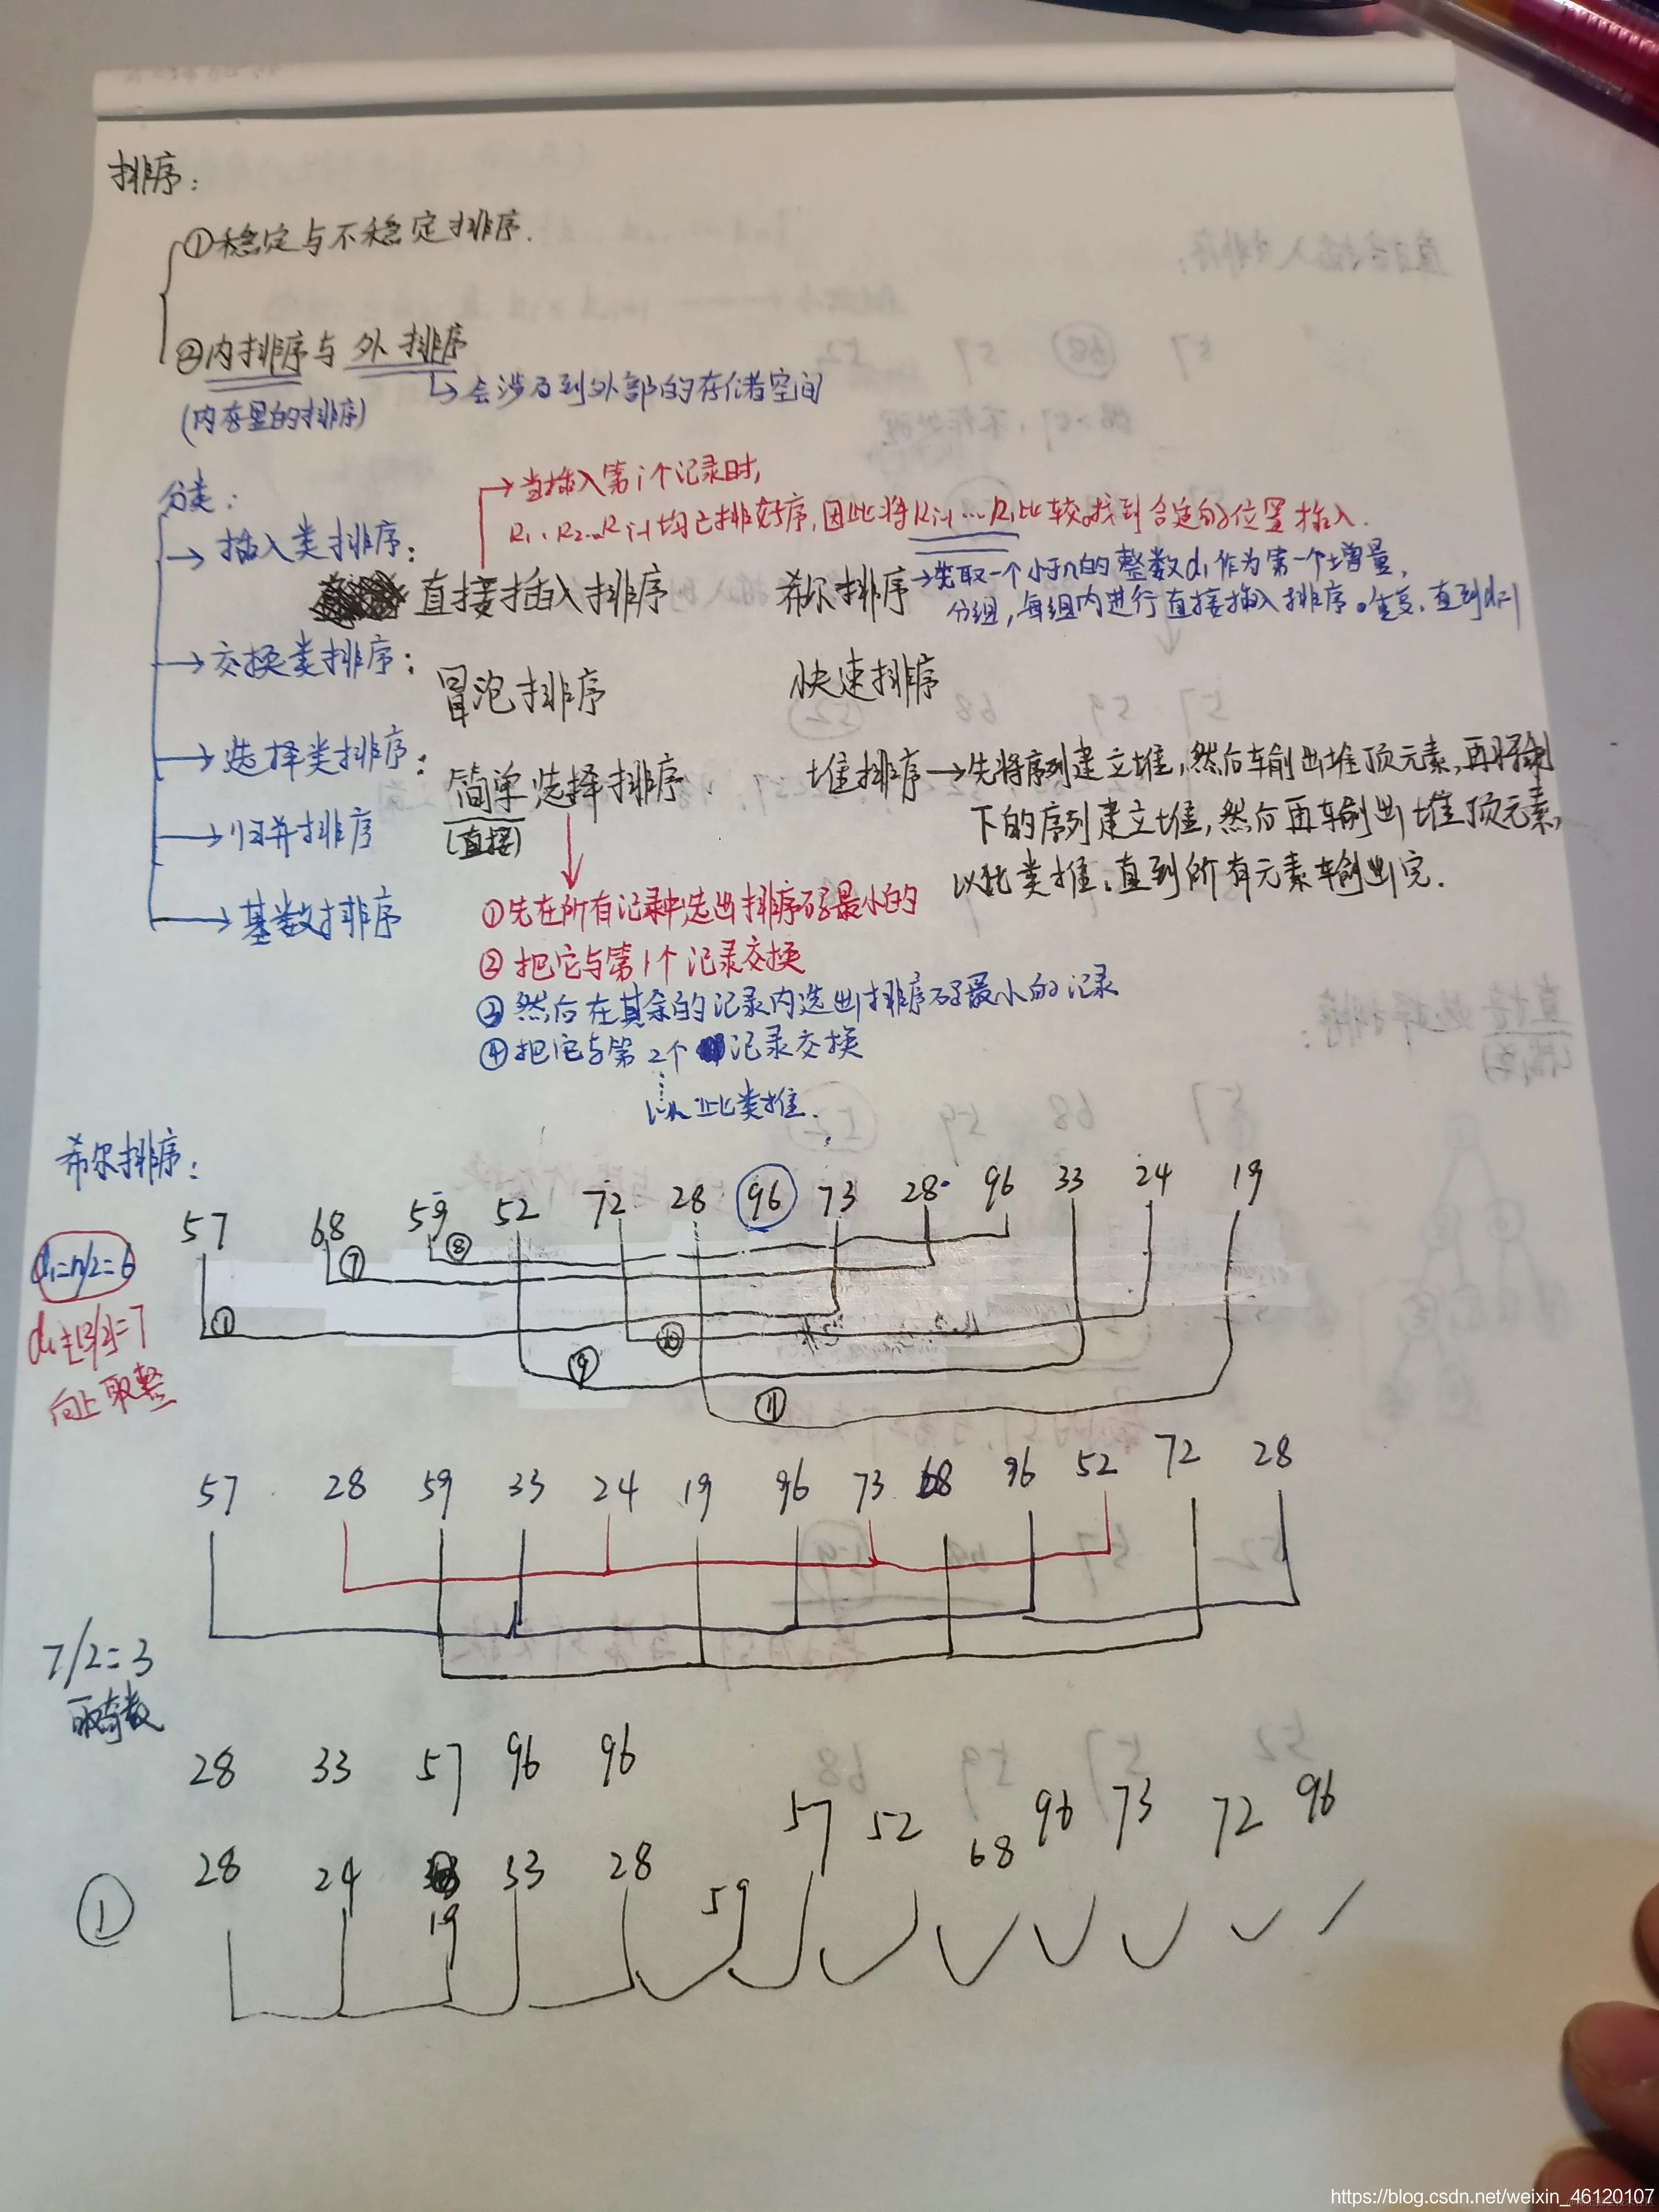 排序：
①稳定与不稳定排序.
②内排序与外排序
(内存里的排序)
会涉及到外部的存储空间
分类：
当插入第i个记录时,
R1、R2...Ri-1均已排好序,因此将Ri-1...R1比较。找到合适的位置插入.
插入类排序：
直接插入排序
希尔排序
先取一个小于n的整数d1作为第一个增量,
分组,每组内进行直接插入排序。重复,直到di=1
交换类排序：
冒泡排序
快速排序
选择类排序：
简单选择排序.
(直接)
堆排序→先将序列建立堆,然后输出堆顶元素,再将剩
下的序列建立堆,然后再输出堆顶元素,
以此类推,直到所有元素输出完.
归并排序
基数排序
①先在所有记录中选出排序码最小的
②把它与第1个记录交换
③然后在其余的记录内选出排序码最小的记录
④把它与第2个记录交换
以此类推.
希尔排序：
57 68 59 52 72 28 96 73 28 96 33 24 19
d1=n/2=6
向上取整
① ⑦ ⑧ ⑨ ⑩ ⑪
57 28 59 33 24 19 96 73 68 96 52 72 28
7/2=3
取奇数
28 33 57 96 96
57 52 68 96 73 72 96
28 24 19 33 28 59
①
https://blog.csdn.net/weixin_46120107